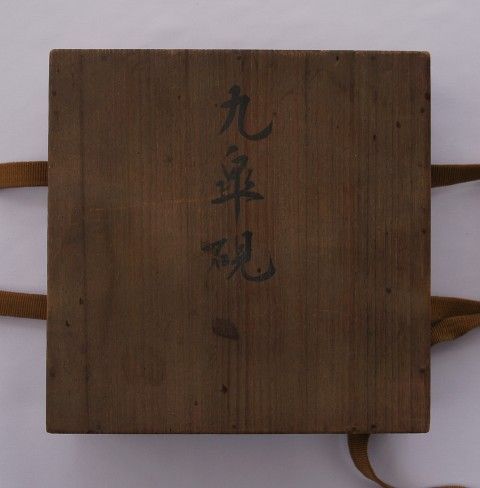 九皐硯